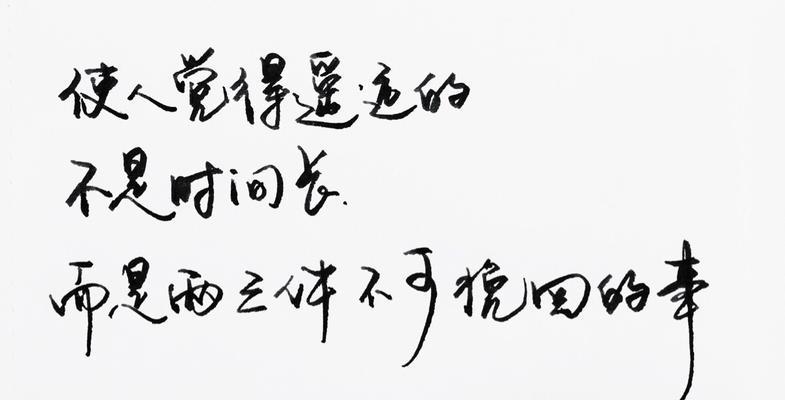 使人觉得遥远的
不是时间长.
而是两三件不可挽回的事